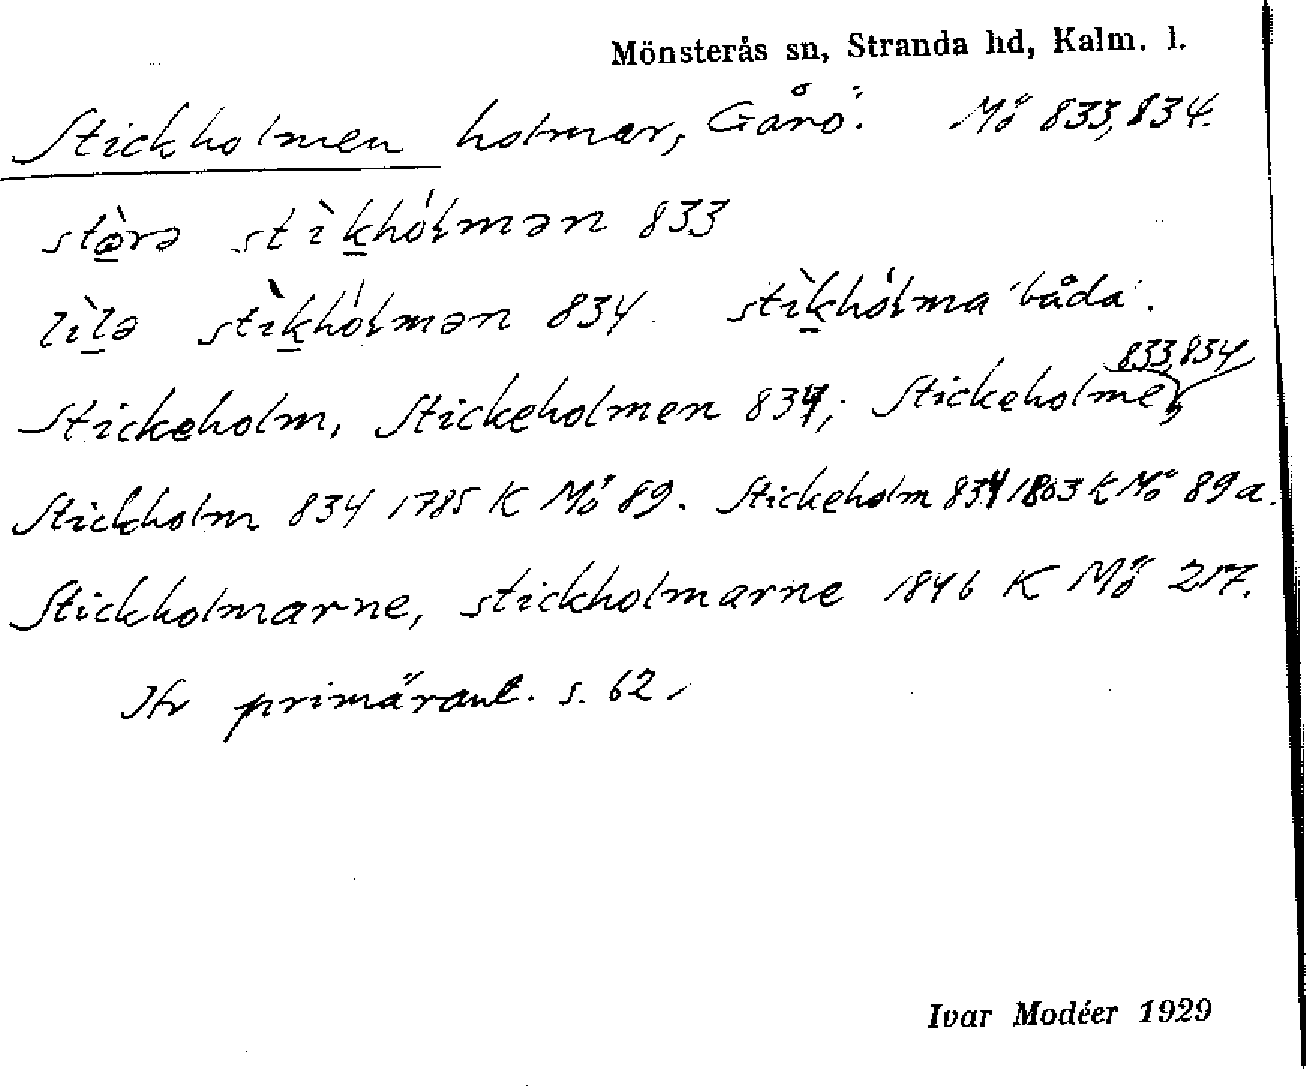 Mönsterås sn, Stranda hd, Kalm. l.
Stickholmen holmar, Gårö. Mö 833, 834.
stòrə stìkhólmən 833
lìlə stìkhólmən 834 stìkhólma 'båda'.
833, 834
Stickeholm, Stickeholmen 834; Stickeholmen
Stickholm 834 1785 K Mö 89. Stickeholm 834 1803 K Mö 89a.
Stickholmarne, stickholmarne 1846 K Mö 217.
Jfr primärant. s. 62.
Ivar Modéer 1929